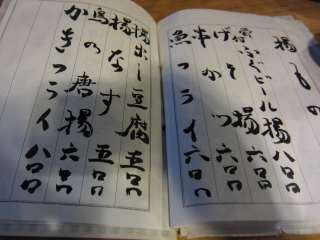 揚もの
ふぐビール揚 八〇〇
げそ揚 六〇〇
串かつ 六〇〇
魚フライ 六〇〇
揚出し豆腐 五〇〇
揚なす 五〇〇
鳥の唐揚 六〇〇
かきフライ 八〇〇